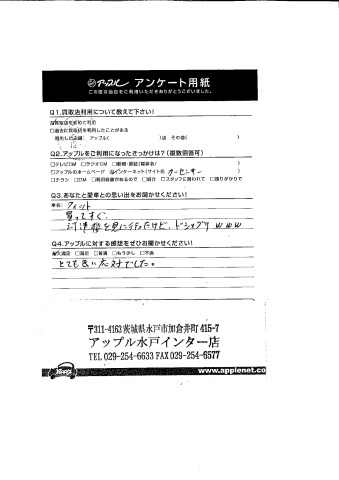 アップル アンケート用紙
この度は当店をご利用いただきありがとうございました。
Q1.買取店利用について教えて下さい!
買取店を初めて利用
□過去に買取店を利用したことがある
利用した店舗: アップル( )店 その他( )
Q2.アップルをご利用になったきっかけは?(複数回答可)
□テレビCM □ラジオCM □新聞・雑誌(媒体名/ )
□アップルのホームページ インターネット(サイト名 カーセンサー )
□チラシ □DM □利用経験があるので □紹介 □スタッフに誘われて □通りがかりで
Q3.あなたと愛車との思い出をお聞かせください!
車名: フィット
買ってすぐ
河津桜を見に行ったけど、ドシャブリ www
Q4.アップルに対する感想をぜひお聞かせください!
大満足 □満足 □普通 □もう少し □不満
とても良い応対でした。
〒311-4163茨城県水戸市加倉井町415-7
アップル水戸インター店
TEL 029-254-6633 FAX 029-254-6577
www.applenet.co